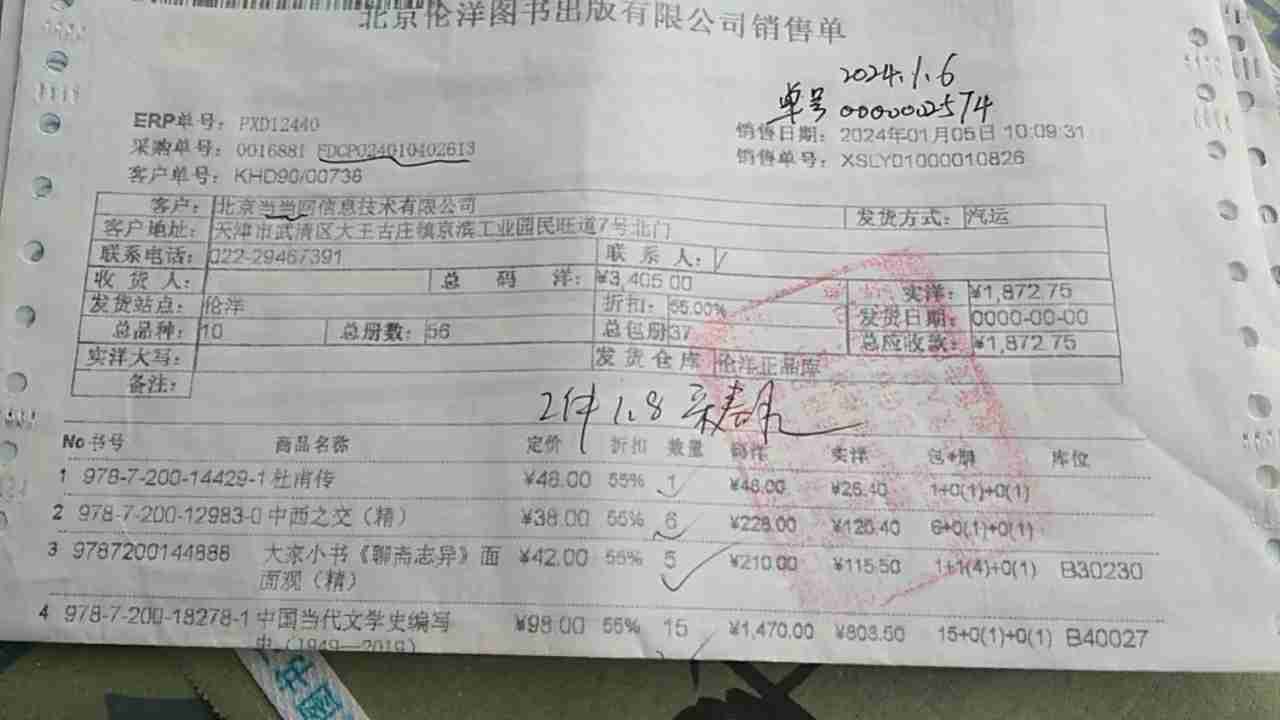 北京伦洋图书出版有限公司销售单
2024.1.6
单号 0000002574
ERP单号: PXD12440
采购单号: 0016881 FDCP024010402613
客户单号: KHD90/00736
销售日期: 2024年01月05日 10:09:31
销售单号: XSLY01000010826
客户: 北京当当网信息技术有限公司 发货方式: 汽运
客户地址: 天津市武清区大王古庄镇京滨工业园民旺道7号北门
联系电话: 022-29467391 联系人:
收货人: 总码洋: ¥3,405.00 实洋: ¥1,872.75
发货站点: 伦洋 折扣: 55.00% 发货日期: 0000-00-00
总品种: 10 总册数: 56 总包册 37 总应收款: ¥1,872.75
实洋大写: 发货仓库 伦洋正品库
备注:
2件 1.8
No 书号 商品名称 定价 折扣 数量 码洋 实洋 包+册 库位
1 978-7-200-14429-1 杜甫传 ¥48.00 55% 1 ¥48.00 ¥26.40 1+0(1)+0(1)
2 978-7-200-12983-0 中西之交（精） ¥38.00 55% 6 ¥228.00 ¥125.40 6+0(1)+0(1)
3 9787200144888 大家小书《聊斋志异》面 ¥42.00 55% 5 ¥210.00 ¥115.50 1+1(4)+0(1) B30230
面观（精）
4 978-7-200-18278-1 中国当代文学史编写 ¥98.00 55% 15 ¥1,470.00 ¥808.50 15+0(1)+0(1) B40027
史（1949—2019）